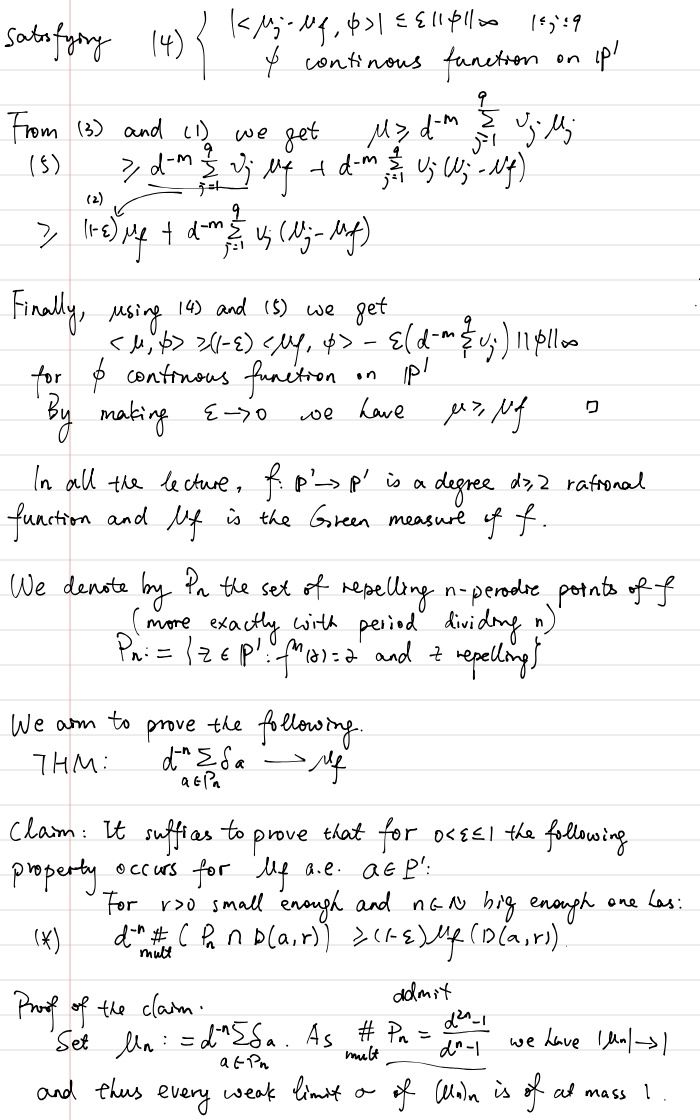 satisfying (4) { |<μ_j - μ_f, φ>| ≤ ε||φ||∞ 1≤j≤q
φ continous function on ℙ¹
From (3) and (1) we get μ ≥ d^{-m} Σ_{j=1}^{q} ν_j μ_j
(5) ≥ d^{-m} Σ_{j=1}^{q} ν_j μ_f + d^{-m} Σ_{j=1}^{q} ν_j (μ_j - μ_f)
(2)
≥ (1-ε) μ_f + d^{-m} Σ_{j=1}^{q} ν_j (μ_j - μ_f)
Finally, using (4) and (5) we get
<μ, φ> ≥ (1-ε) <μ_f, φ> - ε(d^{-m} Σ_{1}^{q} ν_j) ||φ||∞
for φ continous function on ℙ¹
By making ε→0 we have μ ≥ μ_f □
In all the lecture, f: ℙ¹→ℙ¹ is a degree d≥2 rational
function and μ_f is the Green measure of f.
We denote by P_n the set of repelling n-perodic points of f
(more exactly with period dividing n)
P_n := {z ∈ ℙ¹ : f^n(z)=z and z repelling}
We aim to prove the following.
THM: d^{-n} Σ_{a∈P_n} δ_a → μ_f
Claim: It suffies to prove that for 0<ε≤1 the following
property occurs for μ_f a.e. a∈ℙ¹:
For r>0 small enough and n∈ℕ big enough one has:
(*) d^{-n} #_{mult} (P_n ∩ D(a,r)) ≥ (1-ε) μ_f (D(a,r)).
Proof of the claim.
admit
Set μ_n := d^{-n} Σ_{a∈P_n} δ_a. As #_{mult} P_n = \frac{d^{2n}-1}{d^n-1} we have |μ_n| → 1
and thus every weak limit σ of (μ_n)_n is of at mass 1.